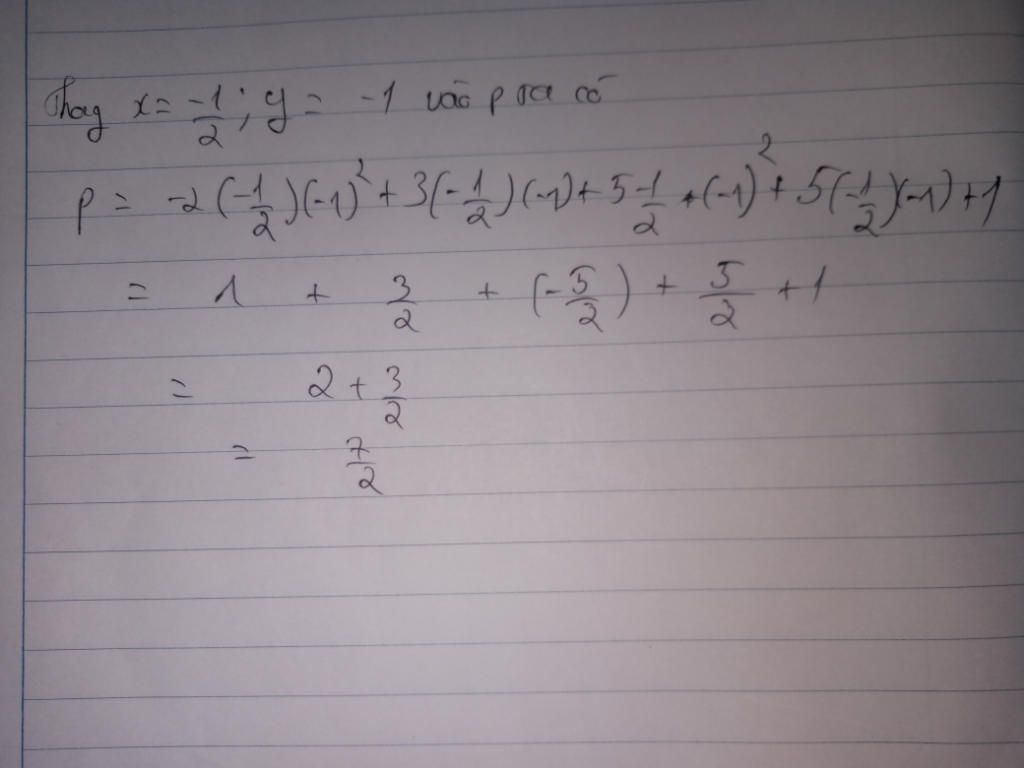 Thay x = -1/2 ; y = -1 vào p ta có
p = -2(-1/2)(-1)² + 3(-1/2)(-1) + 5 -1/2 • (-1)² + 5(-1/2)(-1) + 1
= 1 + 3/2 + (-5/2) + 5/2 + 1
= 2 + 3/2
= 7/2